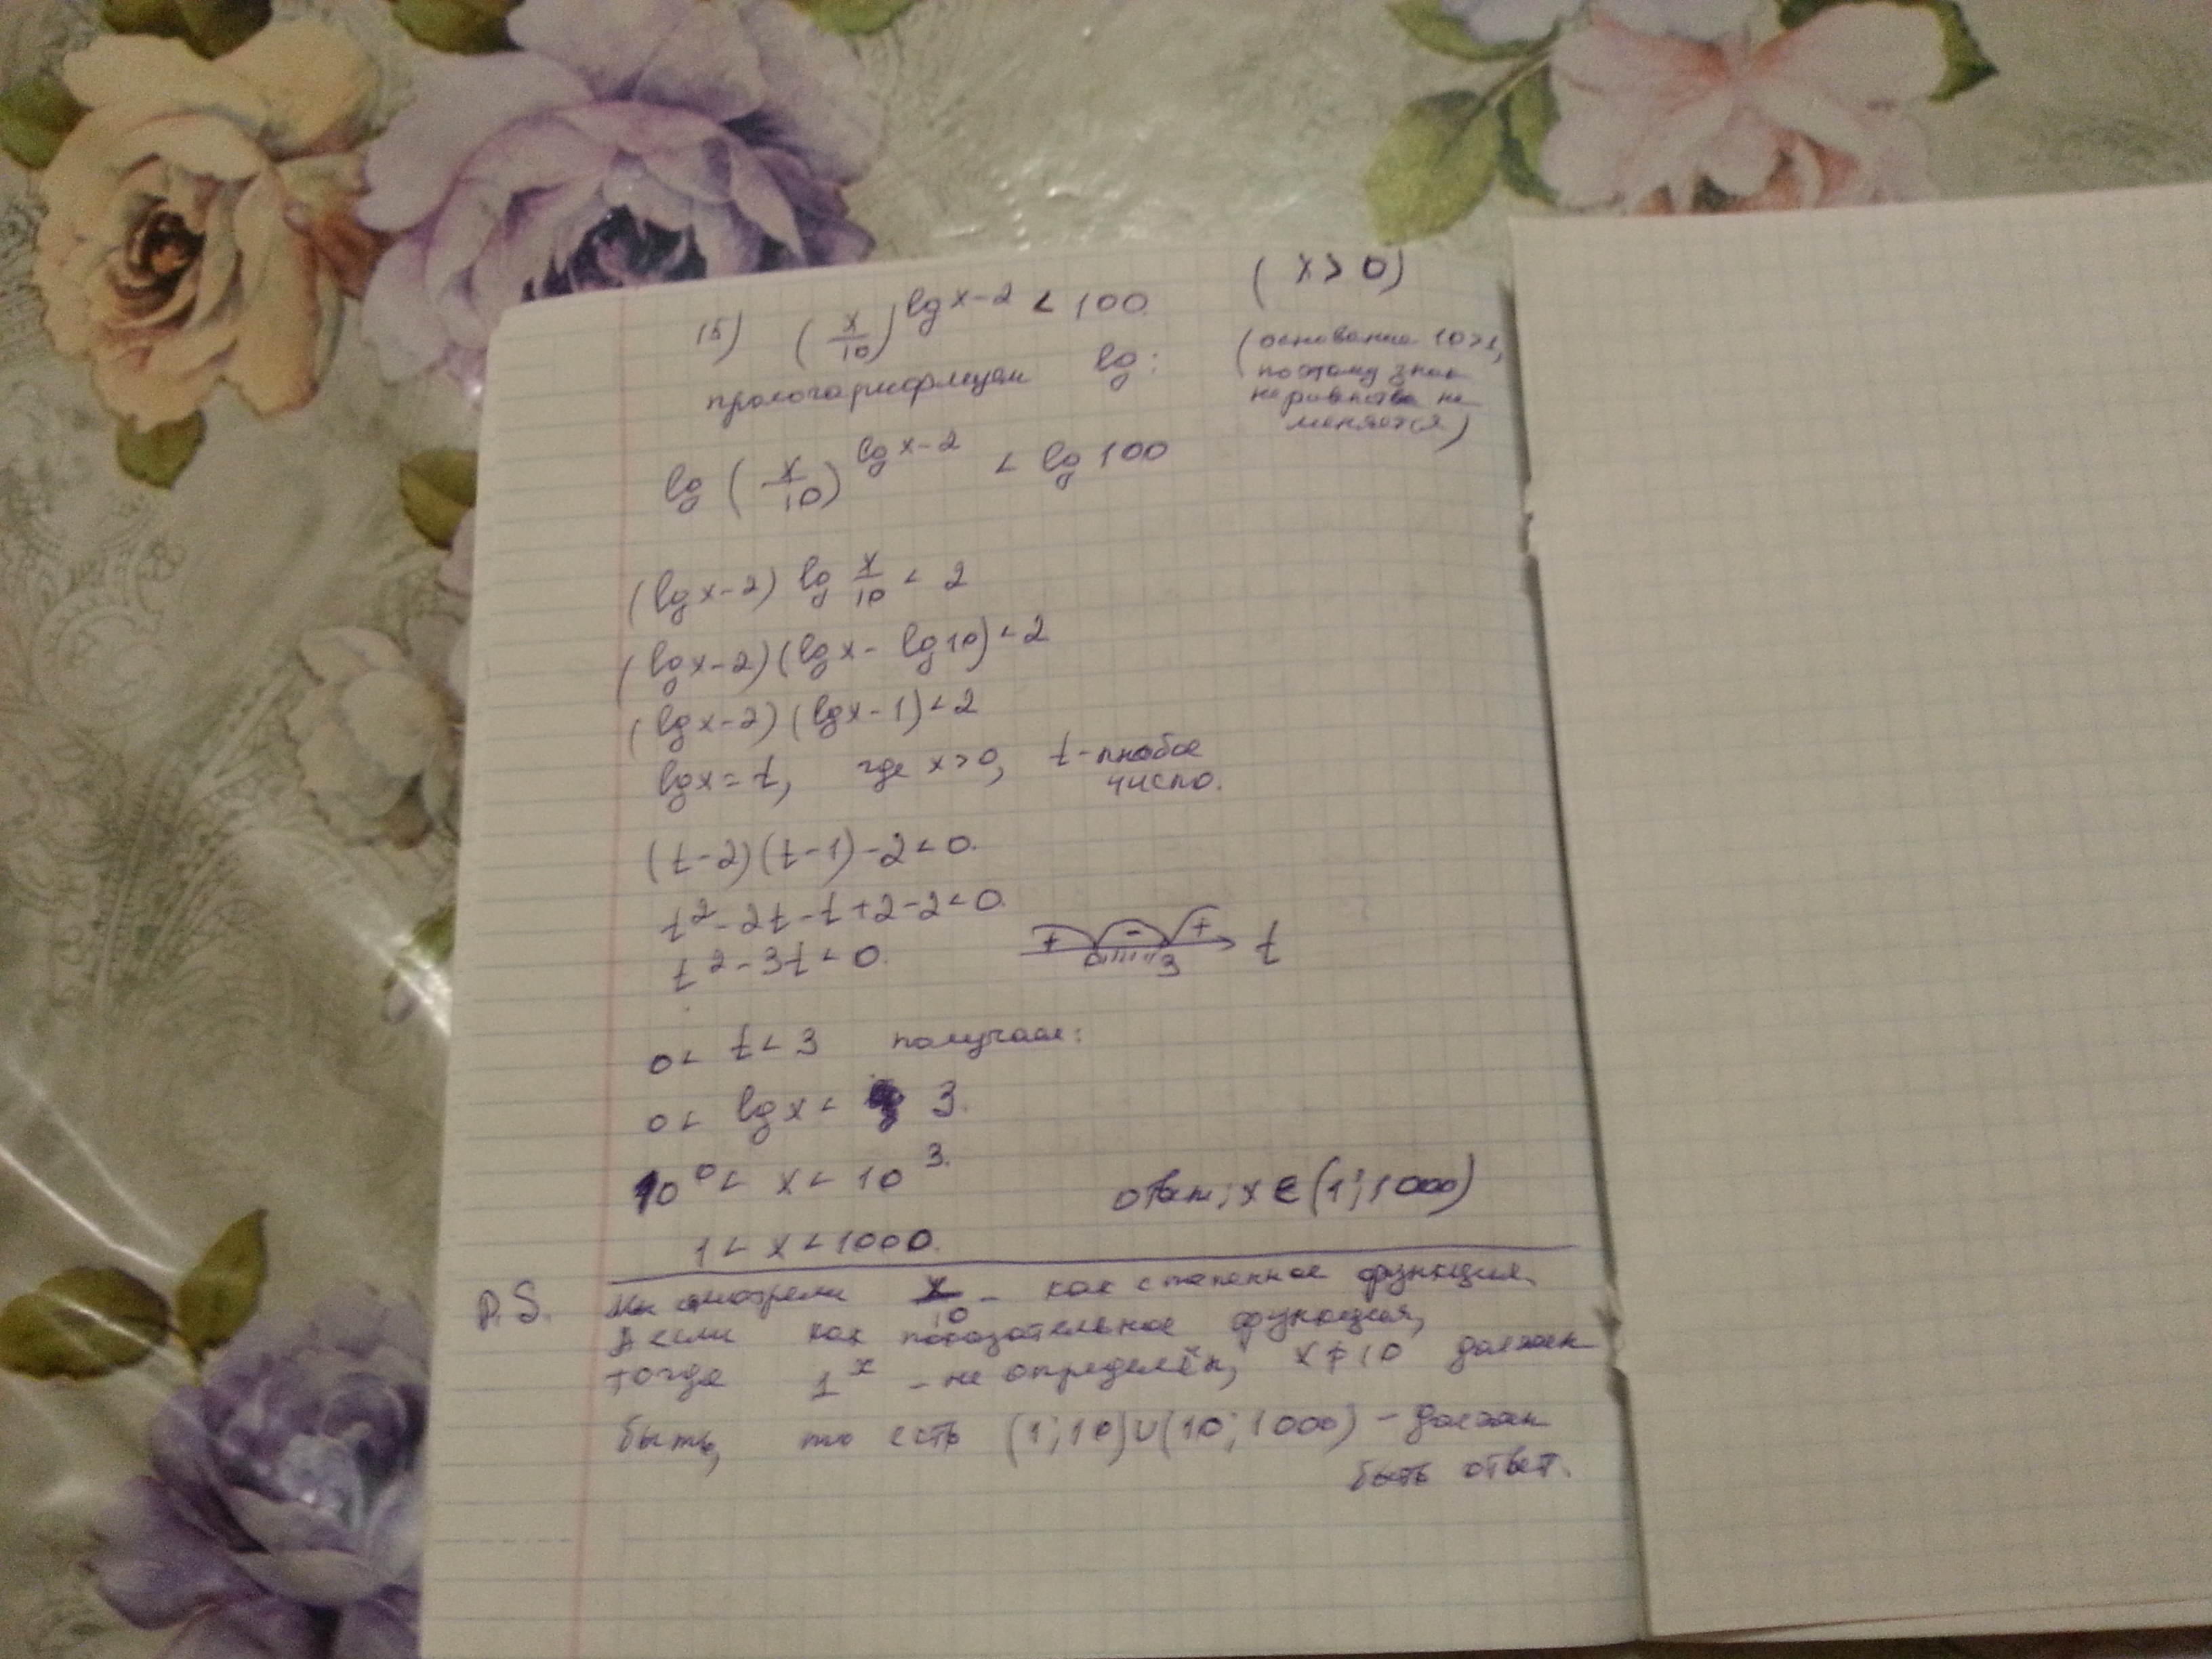 15) (x/10)^(lg x-2) < 100 (x>0)
прологарифмируем lg: (основание 10>1,
поэтому знак
неравенства не
меняется)
lg (x/10)^(lg x-2) < lg 100
(lg x-2) lg x/10 < 2
(lg x-2)(lg x - lg 10) < 2
(lg x-2)(lg x-1) < 2
lg x = t, где x>0, t - любое
число.
(t-2)(t-1)-2<0.
t²-2t-t+2-2<0.
t²-3t<0. + - + 0 3 t
0< t< 3 получаем:
0< lg x< 3.
10⁰< x< 10³.
ответ: x∈(1;1000)
1< x<1000.
P.S. Мы смотрели x/10 - как степенное функция,
А если как показательное функция,
тогда 1^x - не определён, x≠10 должен
быть, то есть (1;10)∪(10;1000) - должен
быть ответ.